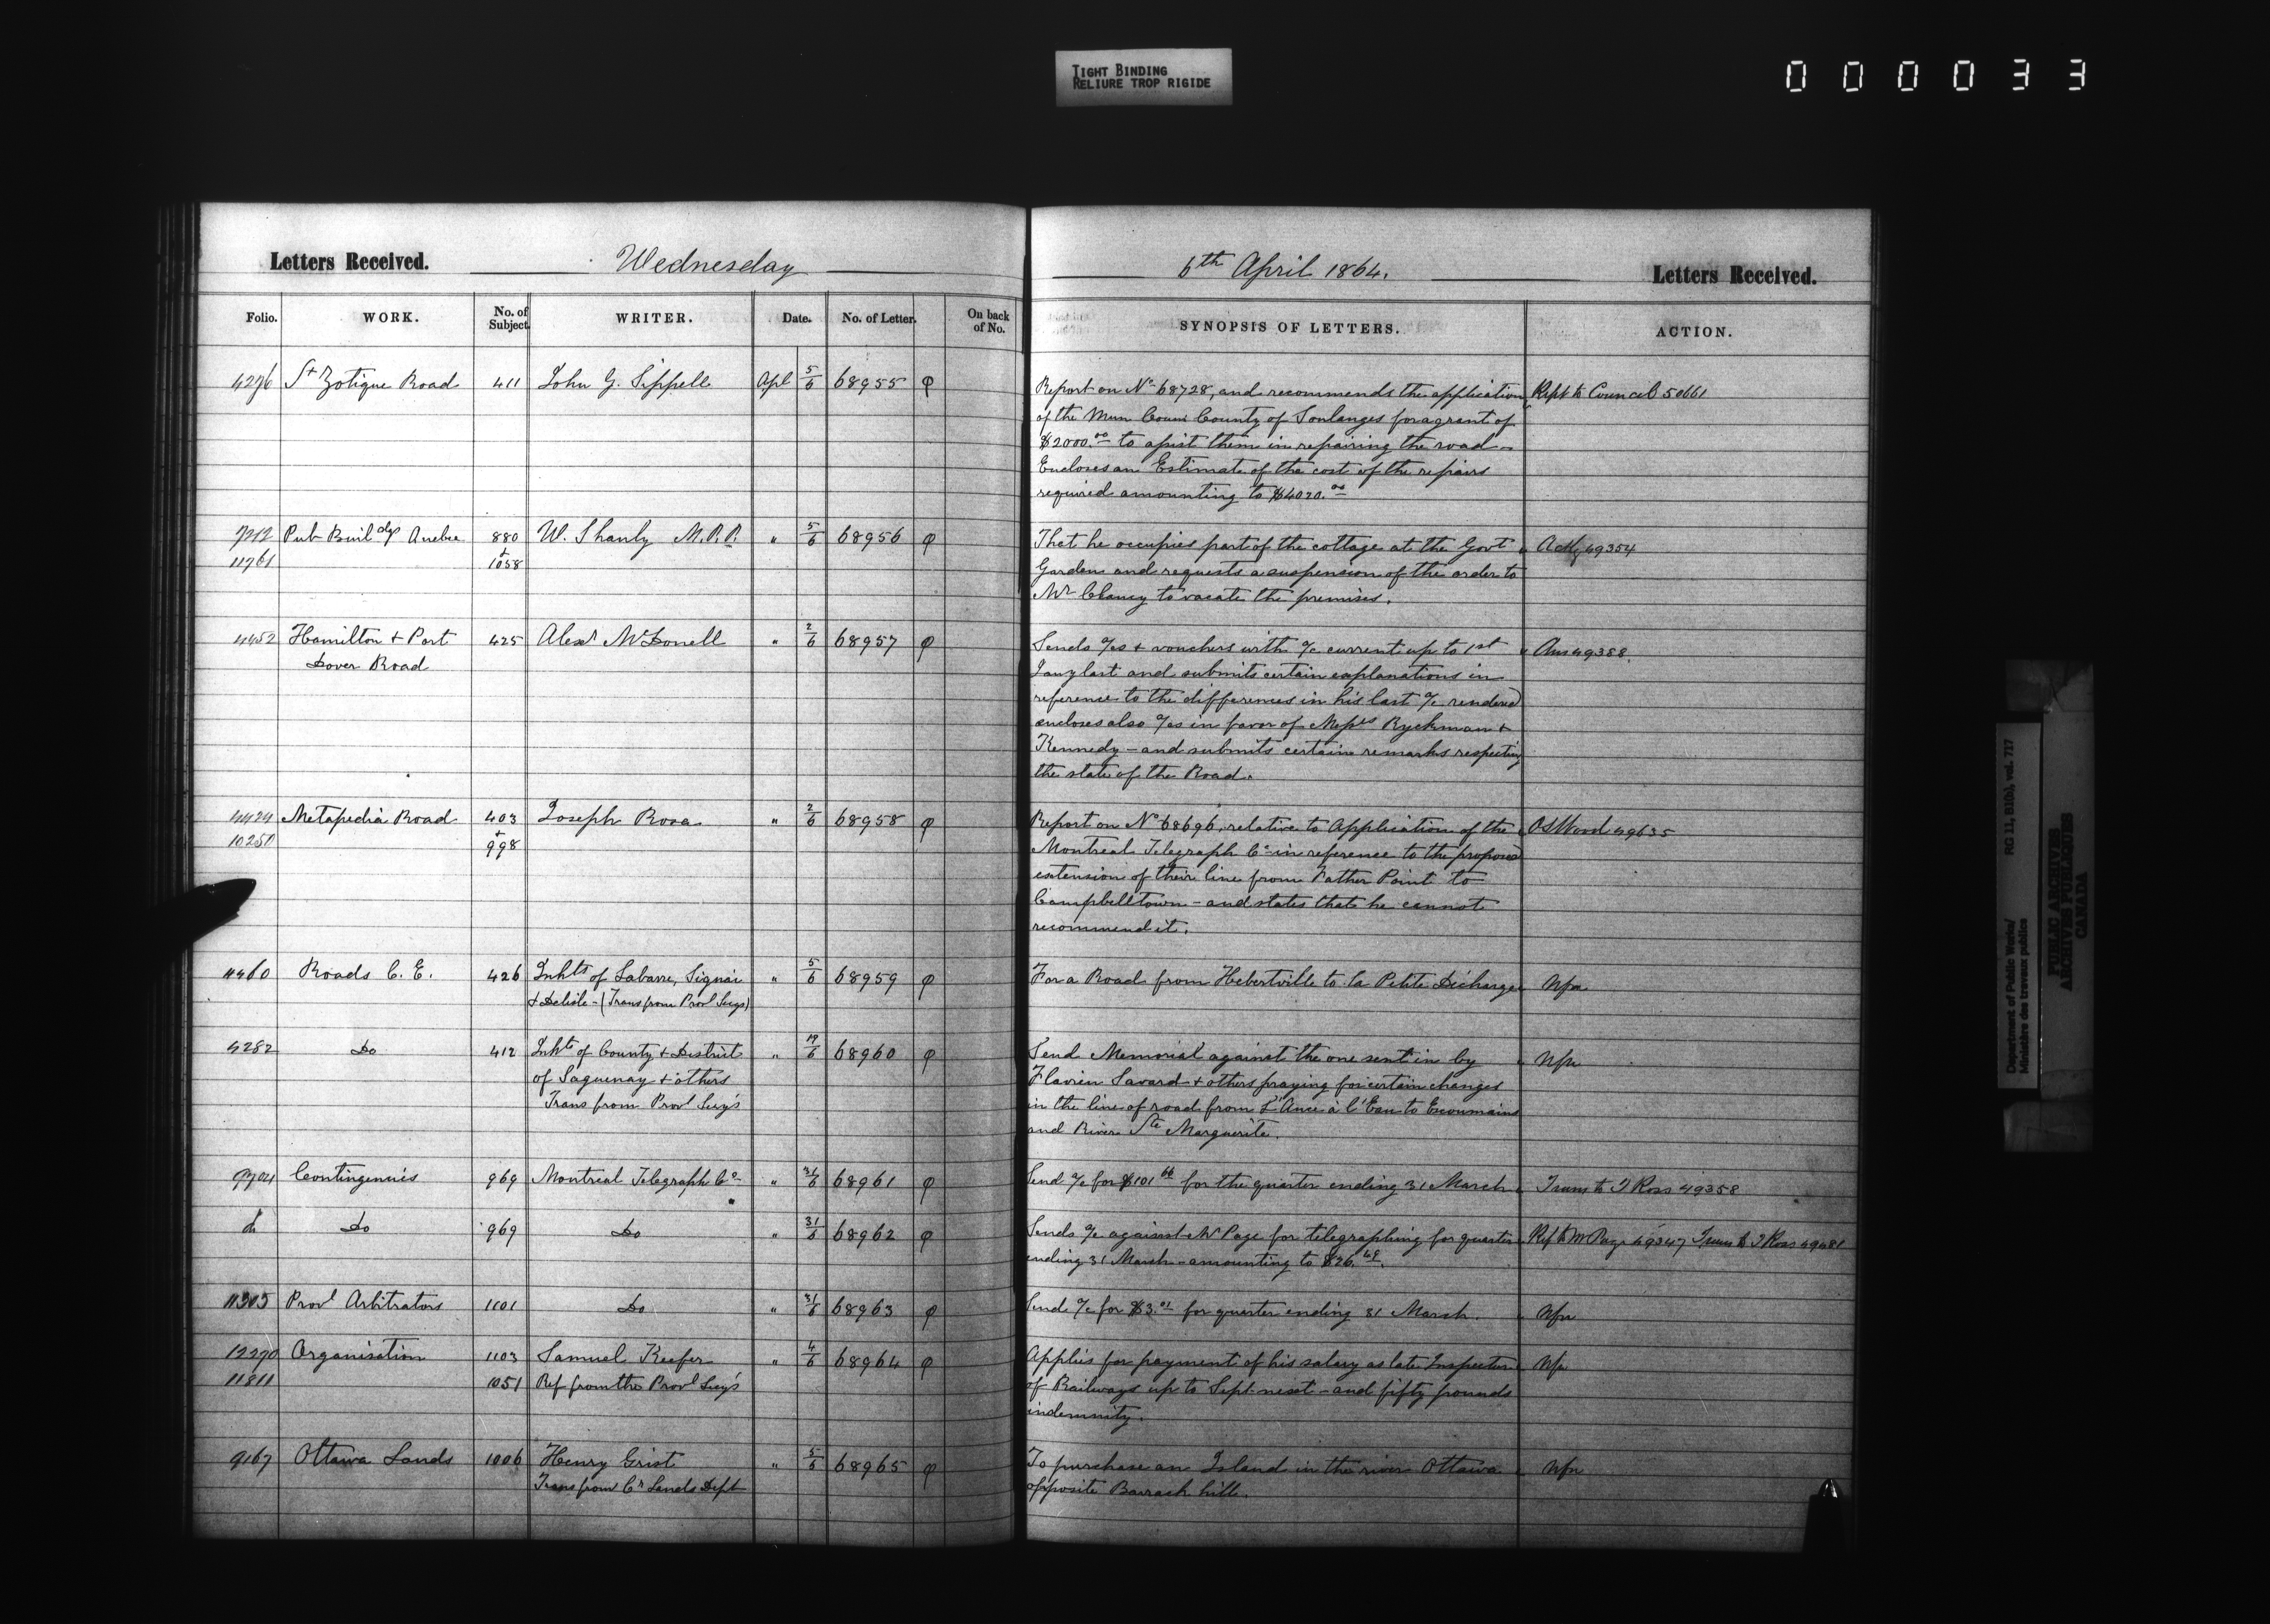 TIGHT BINDING
RELIURE TROP RIGIDE
000033
Letters Received. Wednesday
Folio. WORK. No. of Subject. WRITER. Date. No. of Letter. On back of No.
4276 St Zotique Road 411 John G. Sippell Apl 5/6 68955 φ
7212 Pub Buildgs Quebec 880 W. Shanly M.P.P. " 5/6 68956 φ
11761 + 1058
4452 Hamilton + Port 425 Alexr McDonell " 2/6 68957 φ
Dover Road
4424 Metapedia Road 403 Joseph Rosa " 2/6 68958 φ
10250 + 998
4460 Roads C. E. 426 Inhts of Labarre, Signai " 5/6 68959 φ
& Delisle - (Trans from Provl Secy's)
4282 Do 412 Inhts of County + District " 19/6 68960 φ
of Saguenay + others
Trans from Provl Secy's
9704 Contingencies 969 Montreal Telegraph Co " 31/6 68961 φ
do Do 969 Do " 31/6 68962 φ
11305 Provl Arbitrators 1101 Do " 31/6 68963 φ
12290 Organisation 1103 Samuel Keefer " 4/6 68964 φ
11811 1051 Ref from the Provl Secy's
9167 Ottawa Lands 1006 Henry Grist " 5/6 68965 φ
Trans from Cn Lands Dept
6th April 1864. Letters Received.
SYNOPSIS OF LETTERS. ACTION.
Report on No 68728, and recommends the application Rept to Council 50661
of the Mun Coun County of Soulanges for a grant of
$2000.00 to assist them in repairing the road -
Encloses an Estimate of the cost of the repairs
required amounting to $4020.00
That he occupies part of the cottage at the Govt " Ackg 49354
Garden and requests a suspension of the order to
Mr Clancy to vacate the premises.
Sends a/cs + vouchers with a/c current up to 1st " Ans 49388.
Jany last and submits certain explanations in
reference to the differences in his last a/c rendered
encloses also a/cs in favor of Messrs Ryckman +
Kennedy - and submits certain remarks respecting
the state of the Road.
Report on No 68696, relative to Application of the " O S Wood 49635
Montreal Telegraph Co in reference to the proposed
extension of their line from Father Point to
Campbelltown - and states that he cannot
recommend it.
For a Road from Hebertville to la Petite Décharge " Nfn
Send Memorial against the one sent in by " Nfn
Flavien Savard + others praying for certain changes
in the line of road from L'Ance à l'Eau to Escoumains
and River Ste Marguerite.
Send a/c for $101.66 for the quarter ending 31 March " Trans to J Ross 49358
Sends a/c against Mr Page for telegraphing for quarter " Ref to Mr Page 49347 Trans to J Ross 49481
ending 31 March - amounting to $26.49.
Send a/c for $3.01 for quarter ending 31 March. " Nfn
Applies for payment of his salary as late Inspector " Nfn
of Railways up to Sept. next - and fifty pounds
indemnity.
To purchase an Island in the river Ottawa " Nfn
opposite Barrack hill.
Department of Public Works/ RG 11, B1(b), vol. 717
Ministère des travaux publics
PUBLIC ARCHIVES
ARCHIVES PUBLIQUES
CANADA